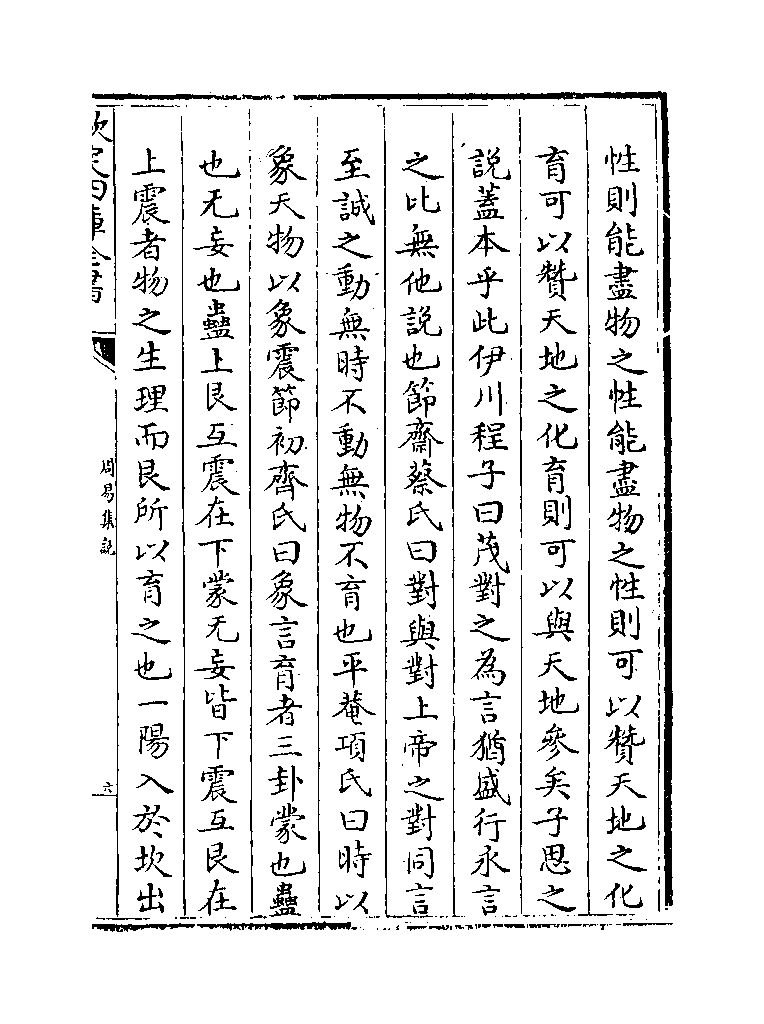 性則能盡物之性能盡物之性則可以贊天地之化
育可以贊天地之化育則可以與天地參矣子思之
說蓋本乎此伊川程子曰茂對之為言猶盛行永言
之比無他說也節齋蔡氏曰對與對上帝之對同言
至誠之動無時不動無物不育也平菴項氏曰時以
象天物以象震節初齊氏曰象言育者三卦蒙也蠱
也无妄也蠱上艮互震在下蒙无妄皆下震互艮在
上震者物之生理而艮所以育之也一陽入於坎出
欽定四庫全書
周易集說
六